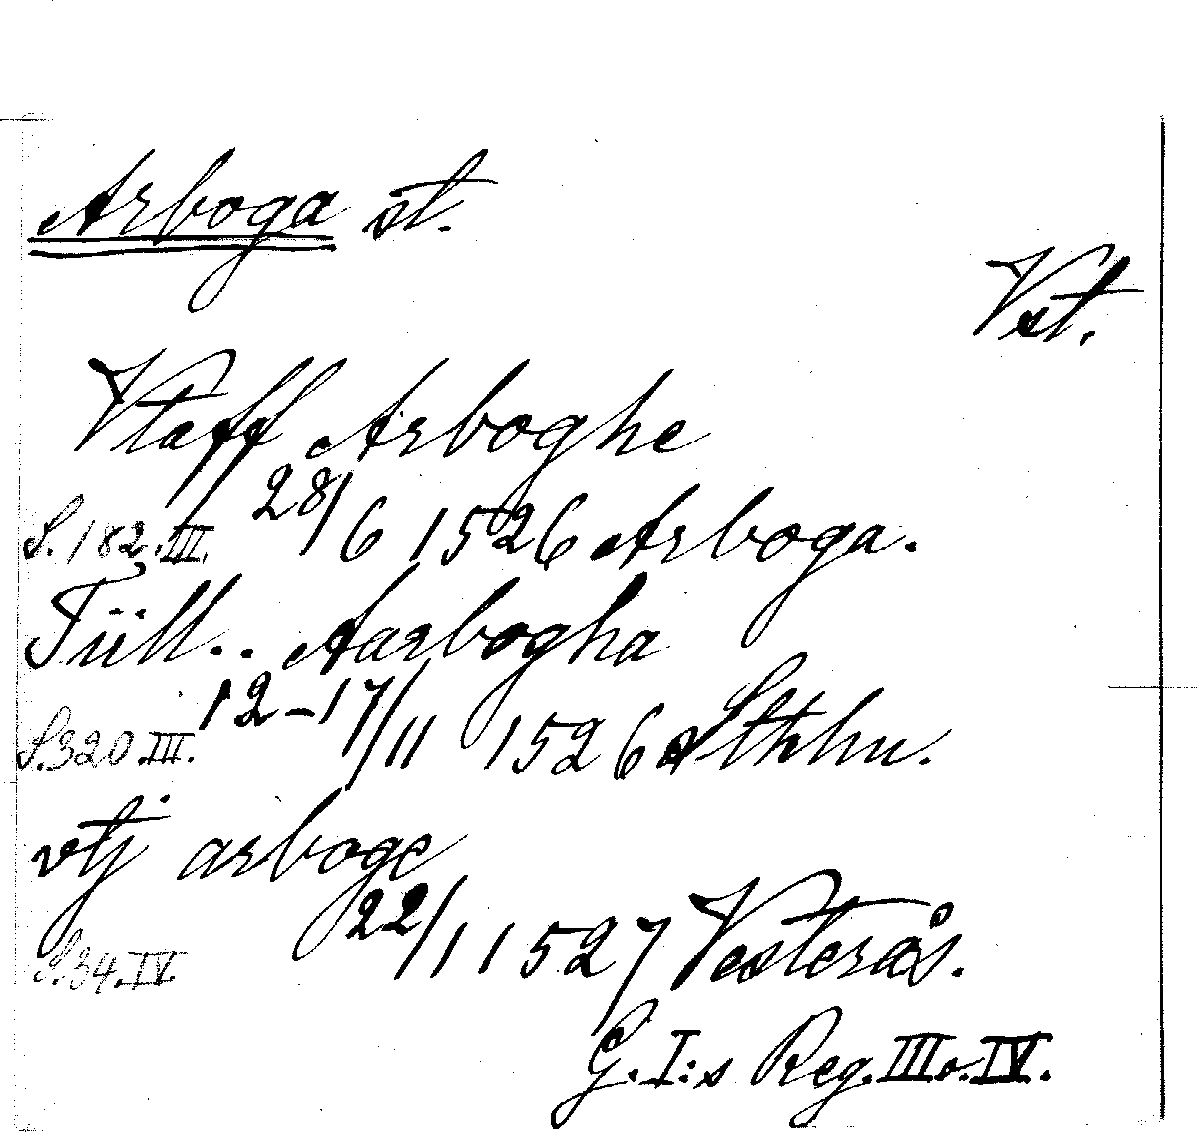 Arboga st.
Vst.
Vtaff Arboghe
S. 182. III. 28/6 1526 Arboga.
Tiill.. Aarbogha
S. 320. III. 12-17/11 1526 Sthlm.
vtj arboge
S. 34. IV. 22/1 1527 Vesterås.
G. I:s Reg. III o. IV.